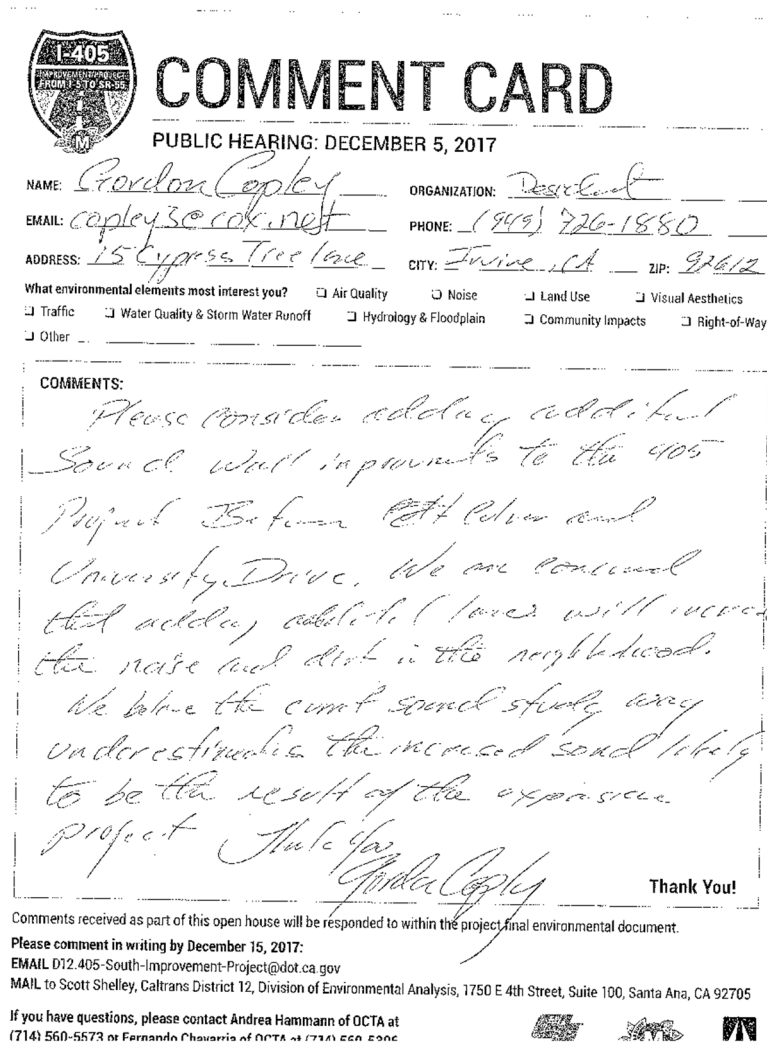 I-405
IMPROVEMENT PROJECT
FROM I-5 TO SR-55
M
COMMENT CARD
PUBLIC HEARING: DECEMBER 5, 2017
NAME: Gordon Copley ORGANIZATION: Resident
EMAIL: copley3@cox.net PHONE: (949) 726-1880
ADDRESS: 15 Cypress Tree lane CITY: Irvine, CA ZIP: 92612
What environmental elements most interest you? Air Quality Noise Land Use Visual Aesthetics
Traffic Water Quality & Storm Water Runoff Hydrology & Floodplain Community Impacts Right-of-Way
Other
COMMENTS:
Please consider adding additional
Sound Wall improvments to the 405
Project Between Culver and
University Drive. We are concerned
that adding additional lanes will increa
the noise and dirt in the neighborhood.
We believe the current sound study way
underestimates the increased sound likely
to be the result of the expansion
project Thank You
Gordon Copley
Thank You!
Comments received as part of this open house will be responded to within the project final environmental document.
Please comment in writing by December 15, 2017:
EMAIL D12.405-South-Improvement-Project@dot.ca.gov
MAIL to Scott Shelley, Caltrans District 12, Division of Environmental Analysis, 1750 E 4th Street, Suite 100, Santa Ana, CA 92705
If you have questions, please contact Andrea Hammann of OCTA at
(714) 560-5573 or Fernando Chavarria of OCTA at (714) 560-5306